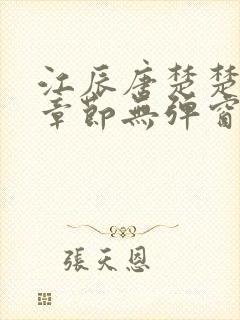 江辰唐楚楚
章節無彈窗
張天恩